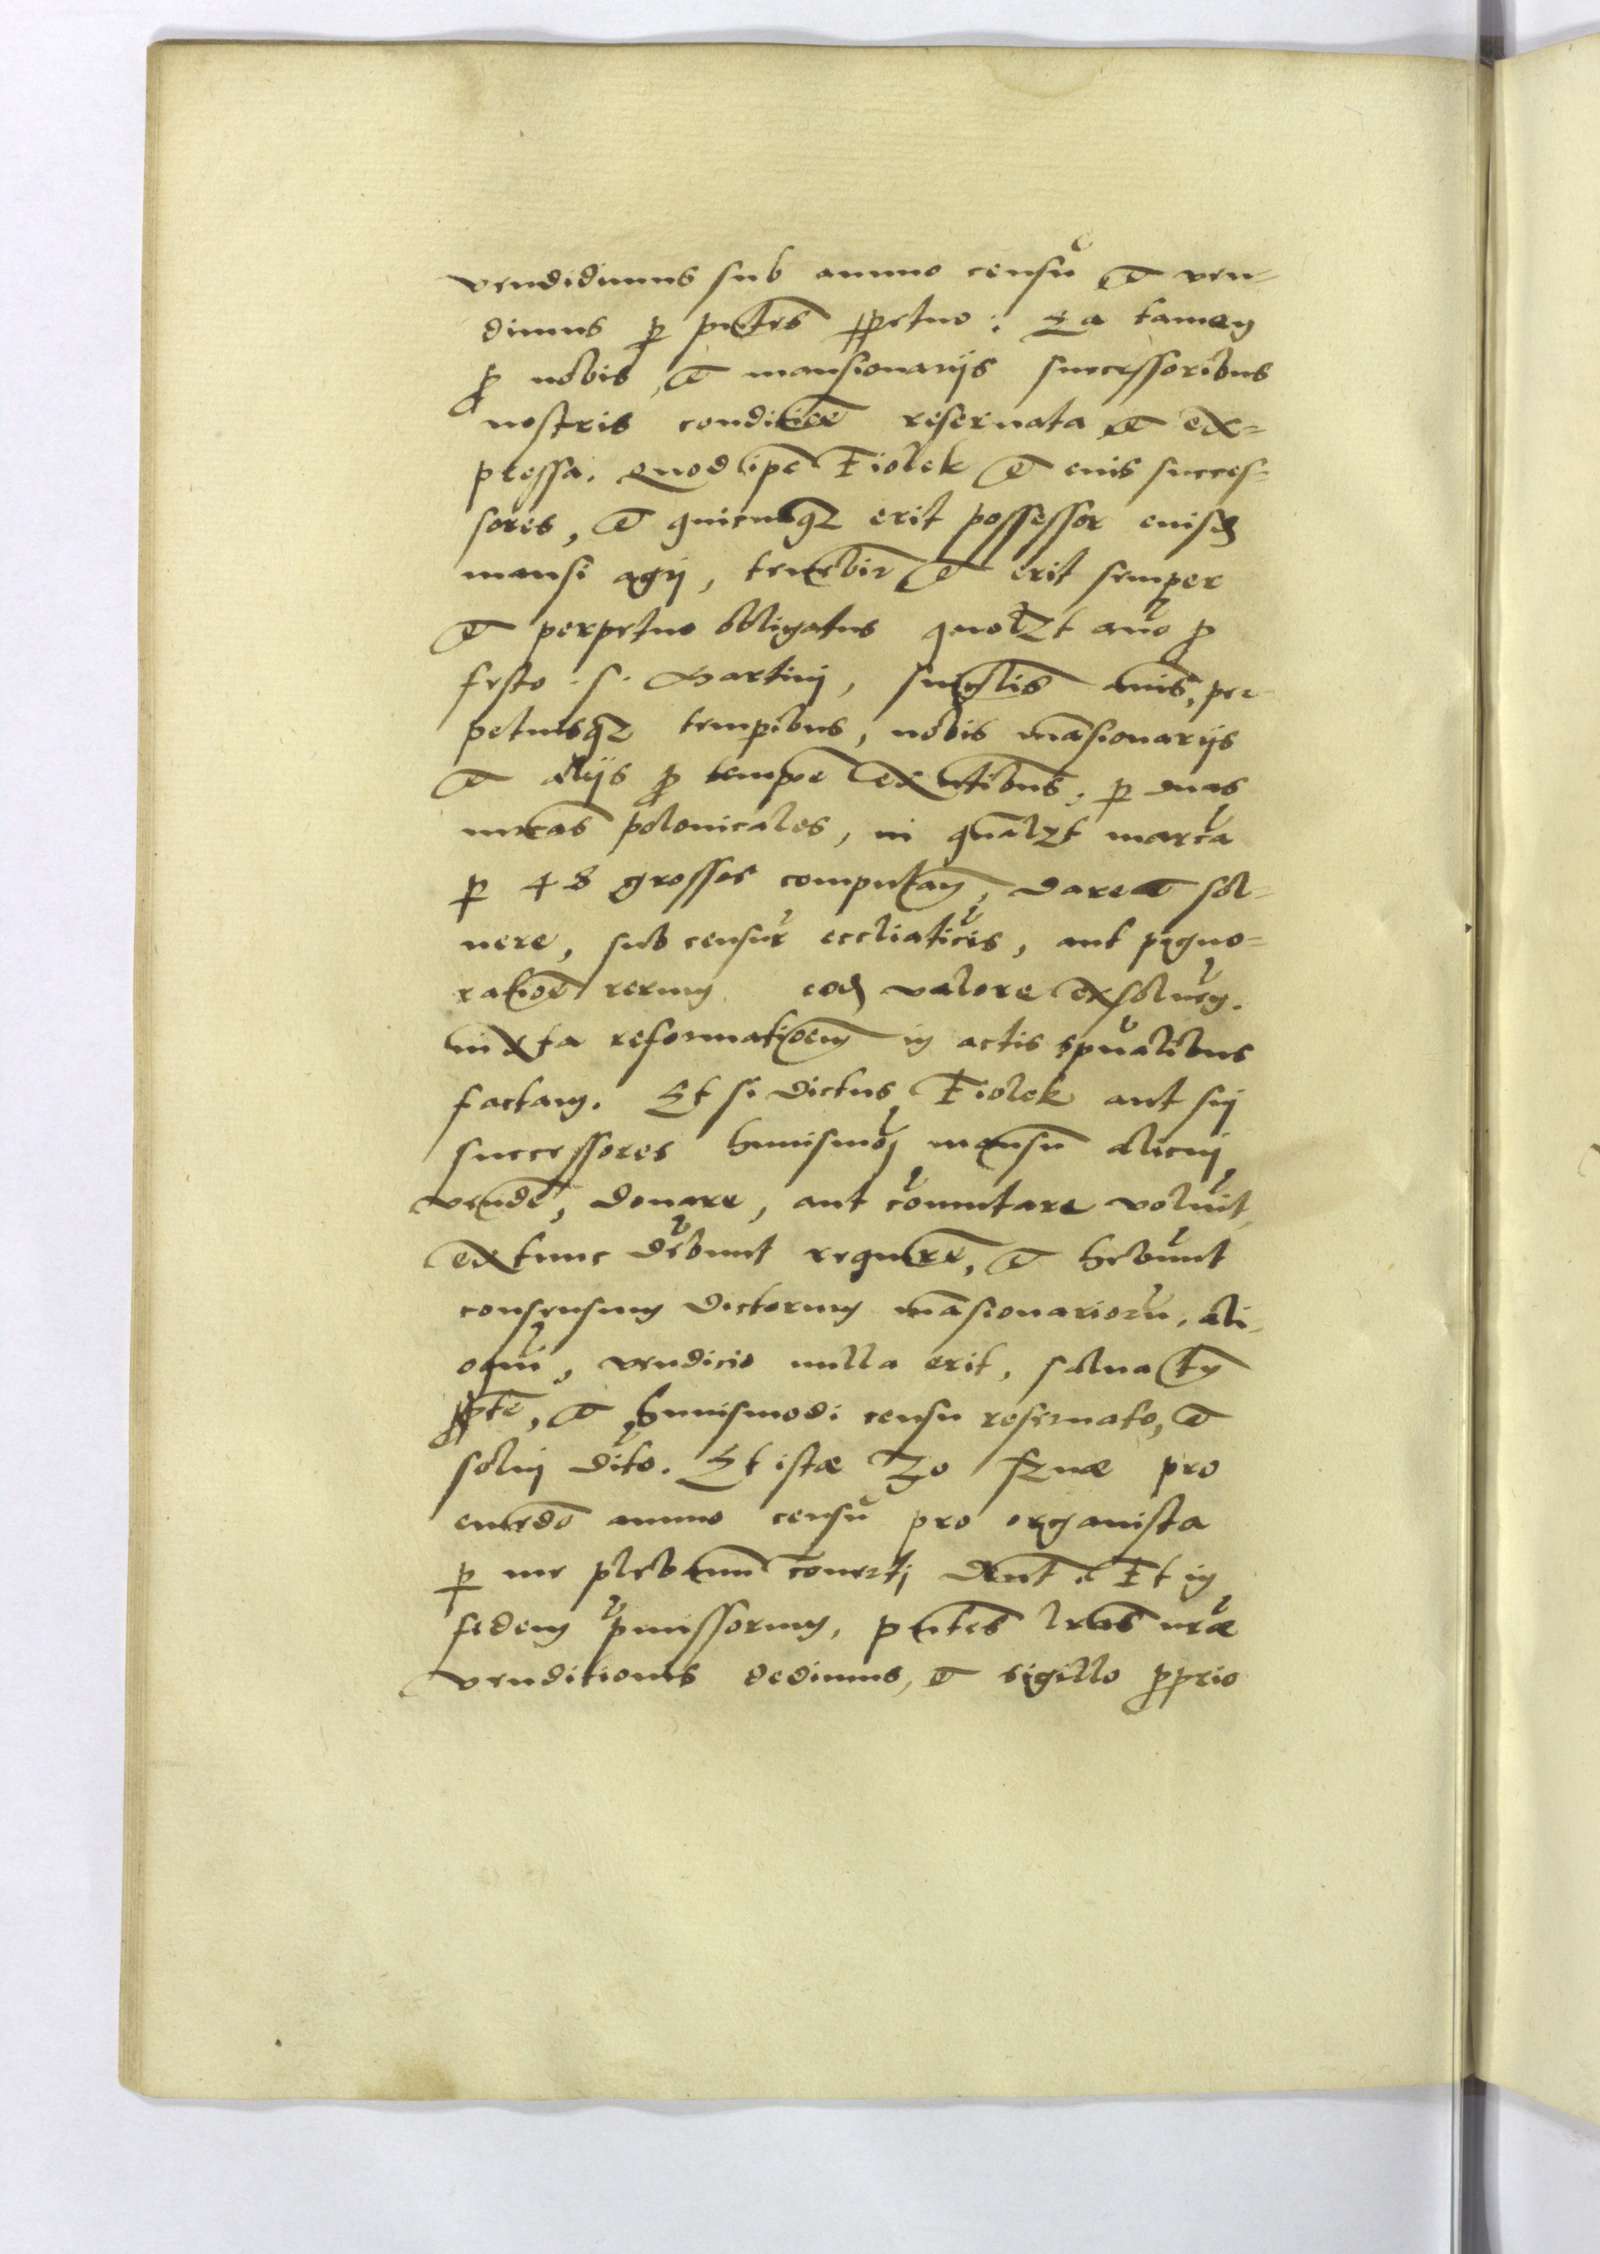 vendidimus sub annuo censu et ven-
dimus p pntes pperpetuo: Ea tamen
p nobis, et mansionarijs successoribus
nostris conditioe reseruata et ex-
pressa. Quod ipe Fiolek et eius succes-
sores, et quicunqz erit possessor eiusd
mansi agri, tenebir et erit semper
et perpetuo obligatus quolzt anno p
festo .S. Martini, singlis annis, per-
petuisqz tempibus, nobis mansionarijs
et alijs p tempe extntibus, p duas
mrcas polonicales, in qualzt marca
p 48 grossos computan, dare et sol-
uere, sub censur eccliaticis, aut pigno-
ratioe rerum eod valore exsoluen.
iuxta reformationem in actis spualibus
factam. Et si dictus Fiolek aut sui
successores huiusmoi mansu alicui
vende, donare, aut comutare voluit,
extunc debunt requirere, et hebunt
consensum dictorum mansionarioru, ali-
oqui, venditio nulla erit, salua tn
ppte, et huiusmodi censu reseruato, et
solui dito. Et istæ 30 frnæ pro
emedo annuo censu pro organista
p me plebanu conuerti dent. Et in
fidem pmissorum, pntes lras nræ
venditionis dedimus, et sigillo pprio